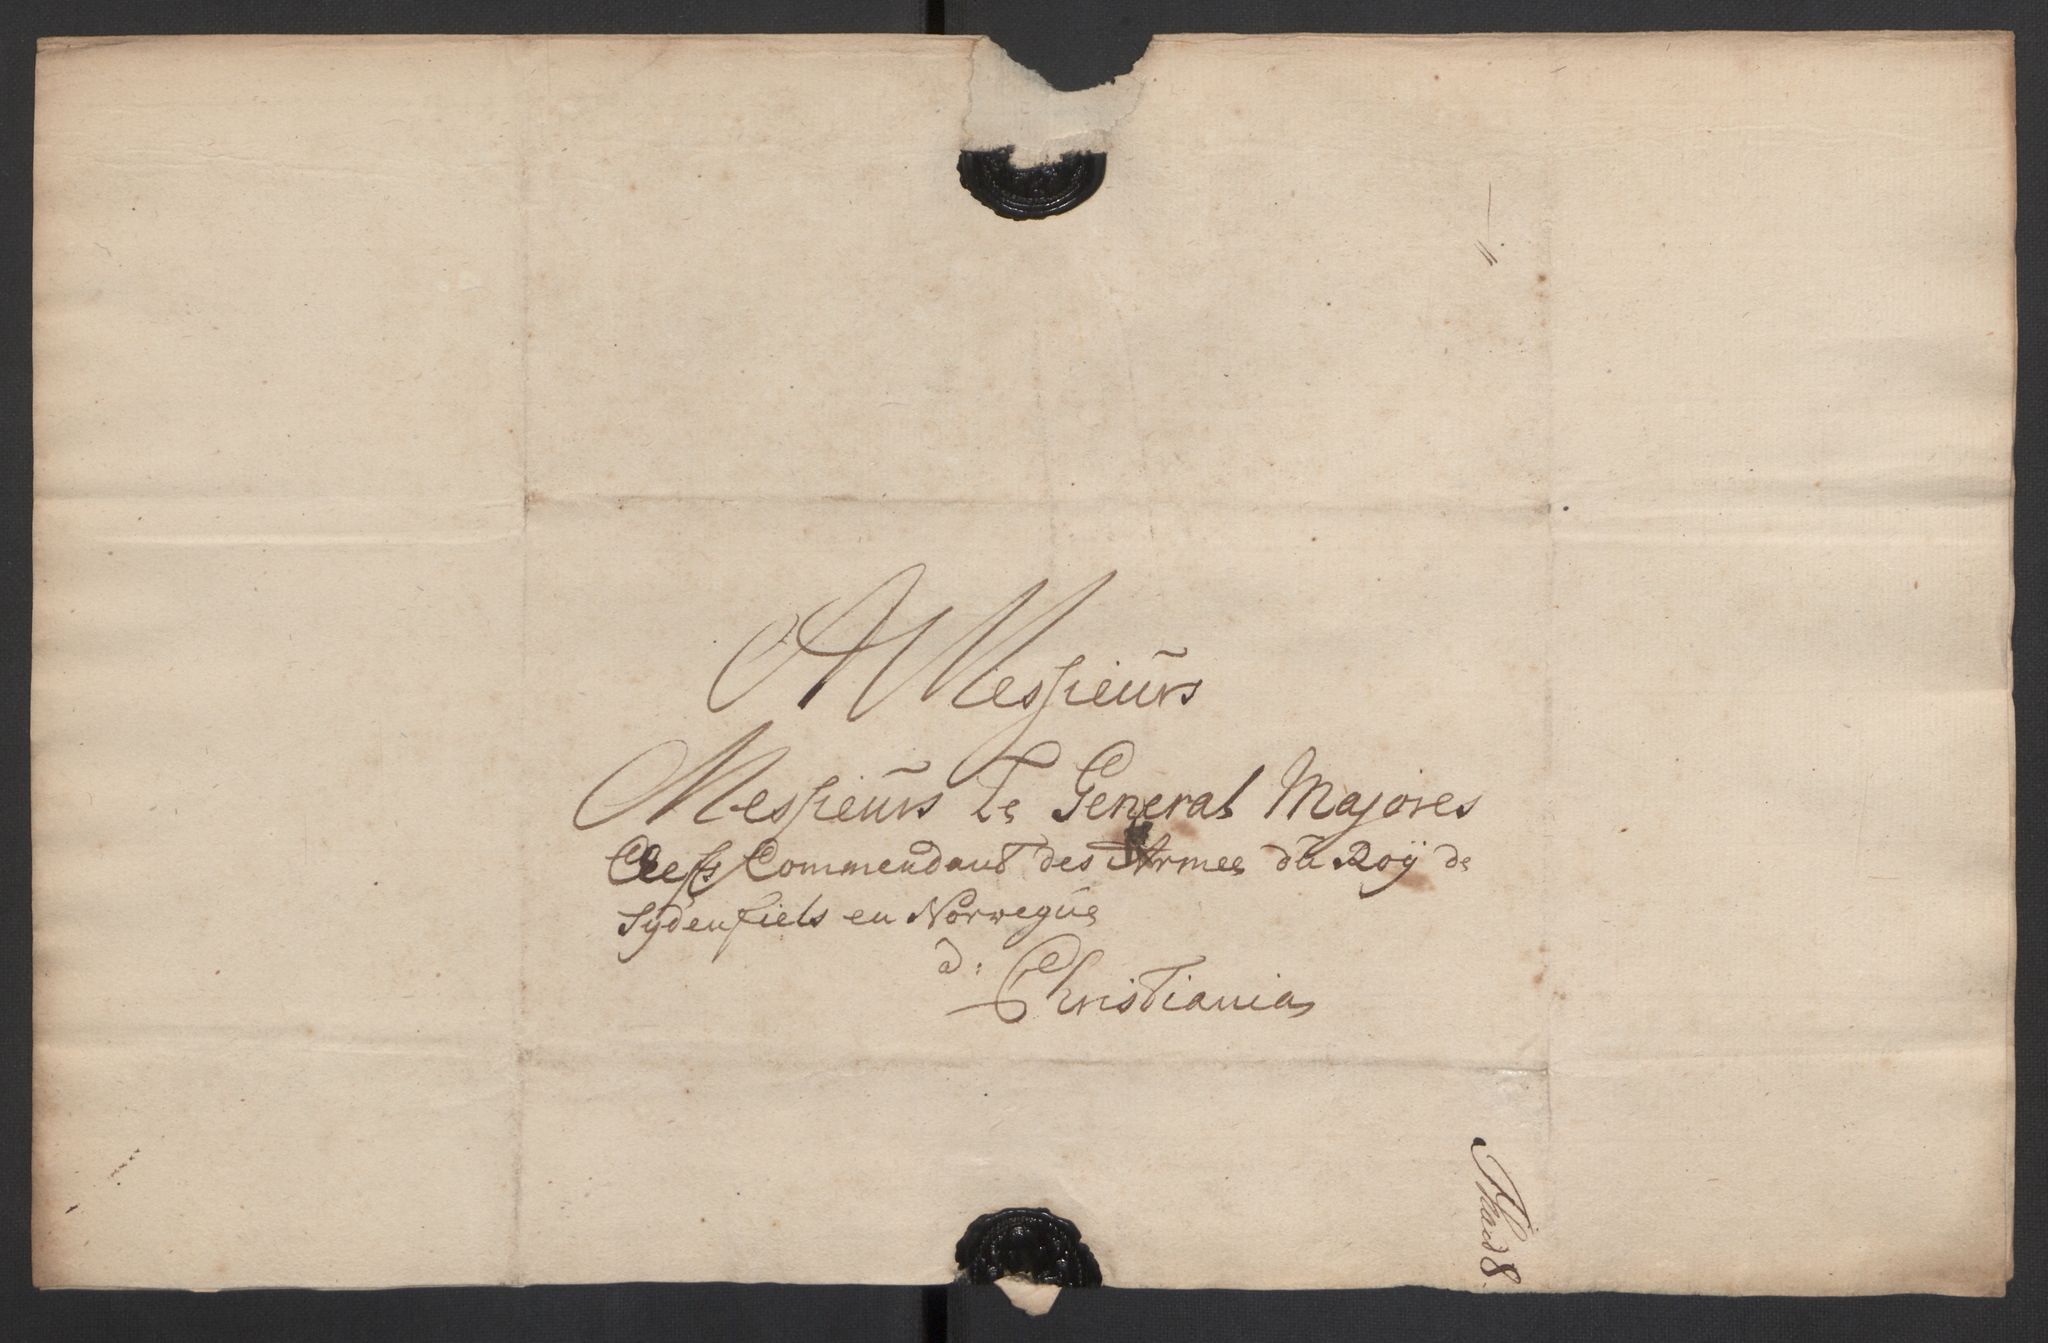 A Messieurs
Messieurs Le General Majores
Cheffs Commendant des Armee du Roÿ de
Sydenfiels en Norwegue
a:
Christiania